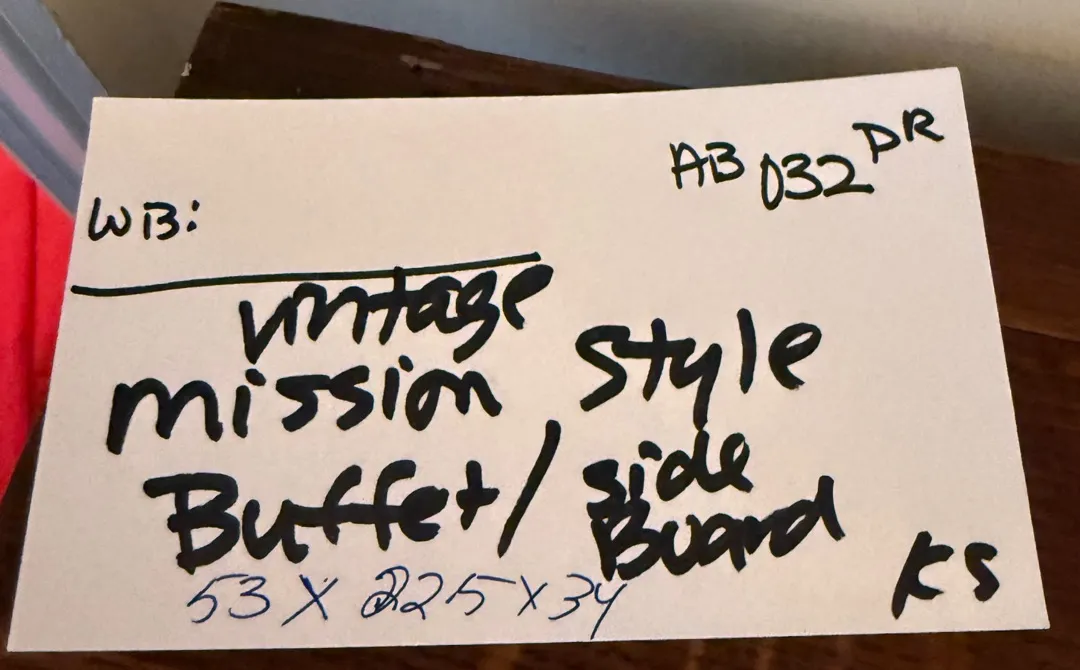 AB 032 DR
WB:
vintage
mission style
Buffet / side
Board
53 x 225 x 34
KS